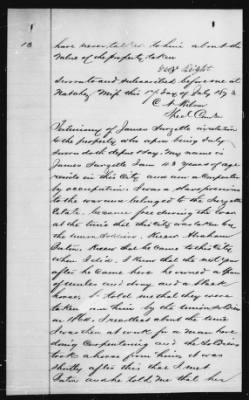 18
have never talked to him about the
value of the property taken
Sworn to and subscribed before me at
Natchez Miss this 17 day of July 1873
Testimony of James Surgette in relation
to the property who upon being duly
sworn doth depose & say. My name is
James Surgette I am 43 years of age
reside in this City and am a Carpenter
by occupation. I was a slave previous
to the war and belonged to the Surgette
Estate. became free during the war
at the time that the City was taken by
the
I know that he came to this City
when I did. I know that the next year
after he came here he owned a
of mules and dray and a black
horse. he told me that they were
taken from him by the
in 1864. I recollect about the time
I was then at work for a man here
doing Carpentering and the Soldiers
took a horse from him, it was
shortly after this that I met
and he told me that he